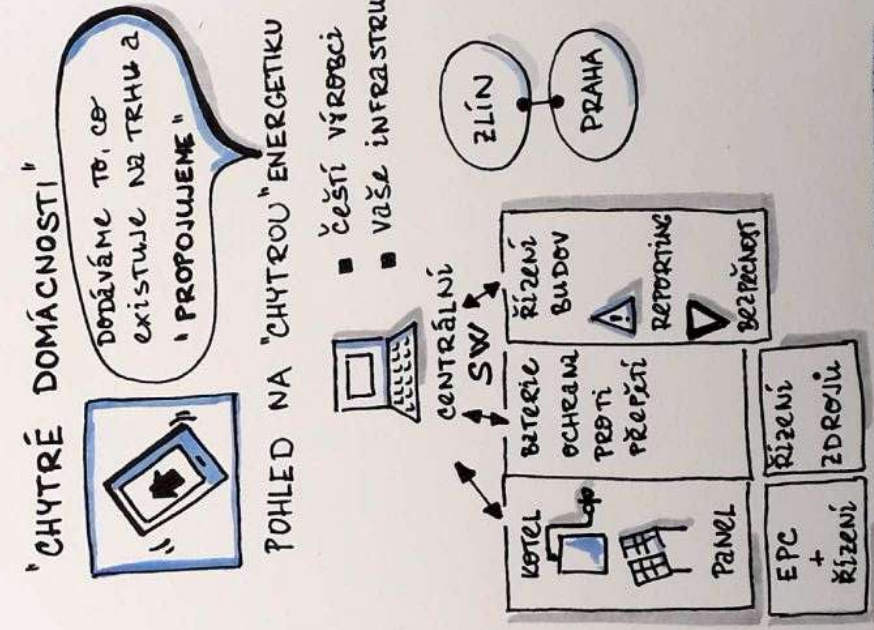 "CHYTRÉ DOMÁCNOSTI"
DODÁVÁME TO, CO
EXISTUJE NA TRHU A
"PROPOJUJEME"
POHLED NA "CHYTROU" ENERGETIKU
ČEŠTÍ VÝROBCI
VAŠE INFRASTRU
CENTRÁLNÍ
SW
ZLÍN
PRAHA
KOTEL
PANEL
BATERIE
OCHRANA
PROTI
PŘEPĚTÍ
ŘÍZENÍ
BUDOV
REPORTING
BEZPEČNOST
EPC
+
ŘÍZENÍ
ŘÍZENÍ
ZDROJŮ